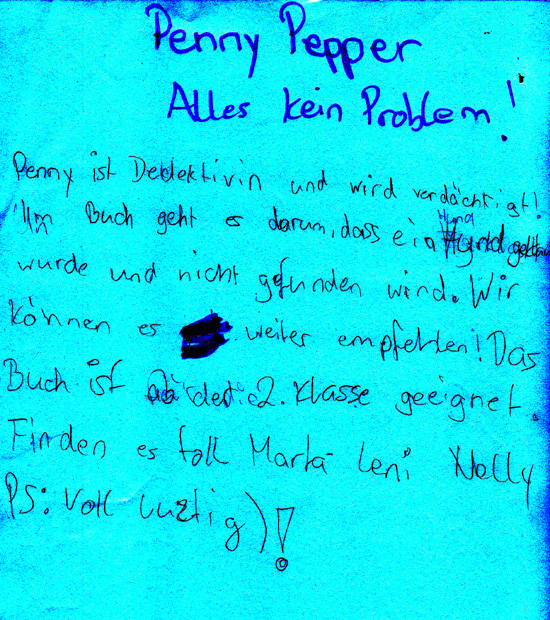 Penny Pepper
Alles kein Problem!
Penny ist Detektivin und wird verdächtigt!
Im Buch geht es darum, dass ein Hund
wurde und nicht gefunden wird. Wir
können es weiter empfehlen! Das
Buch ist 2. Klasse geeignet.
Finden es toll Marta Leni Nelly
PS: Voll lustig)!